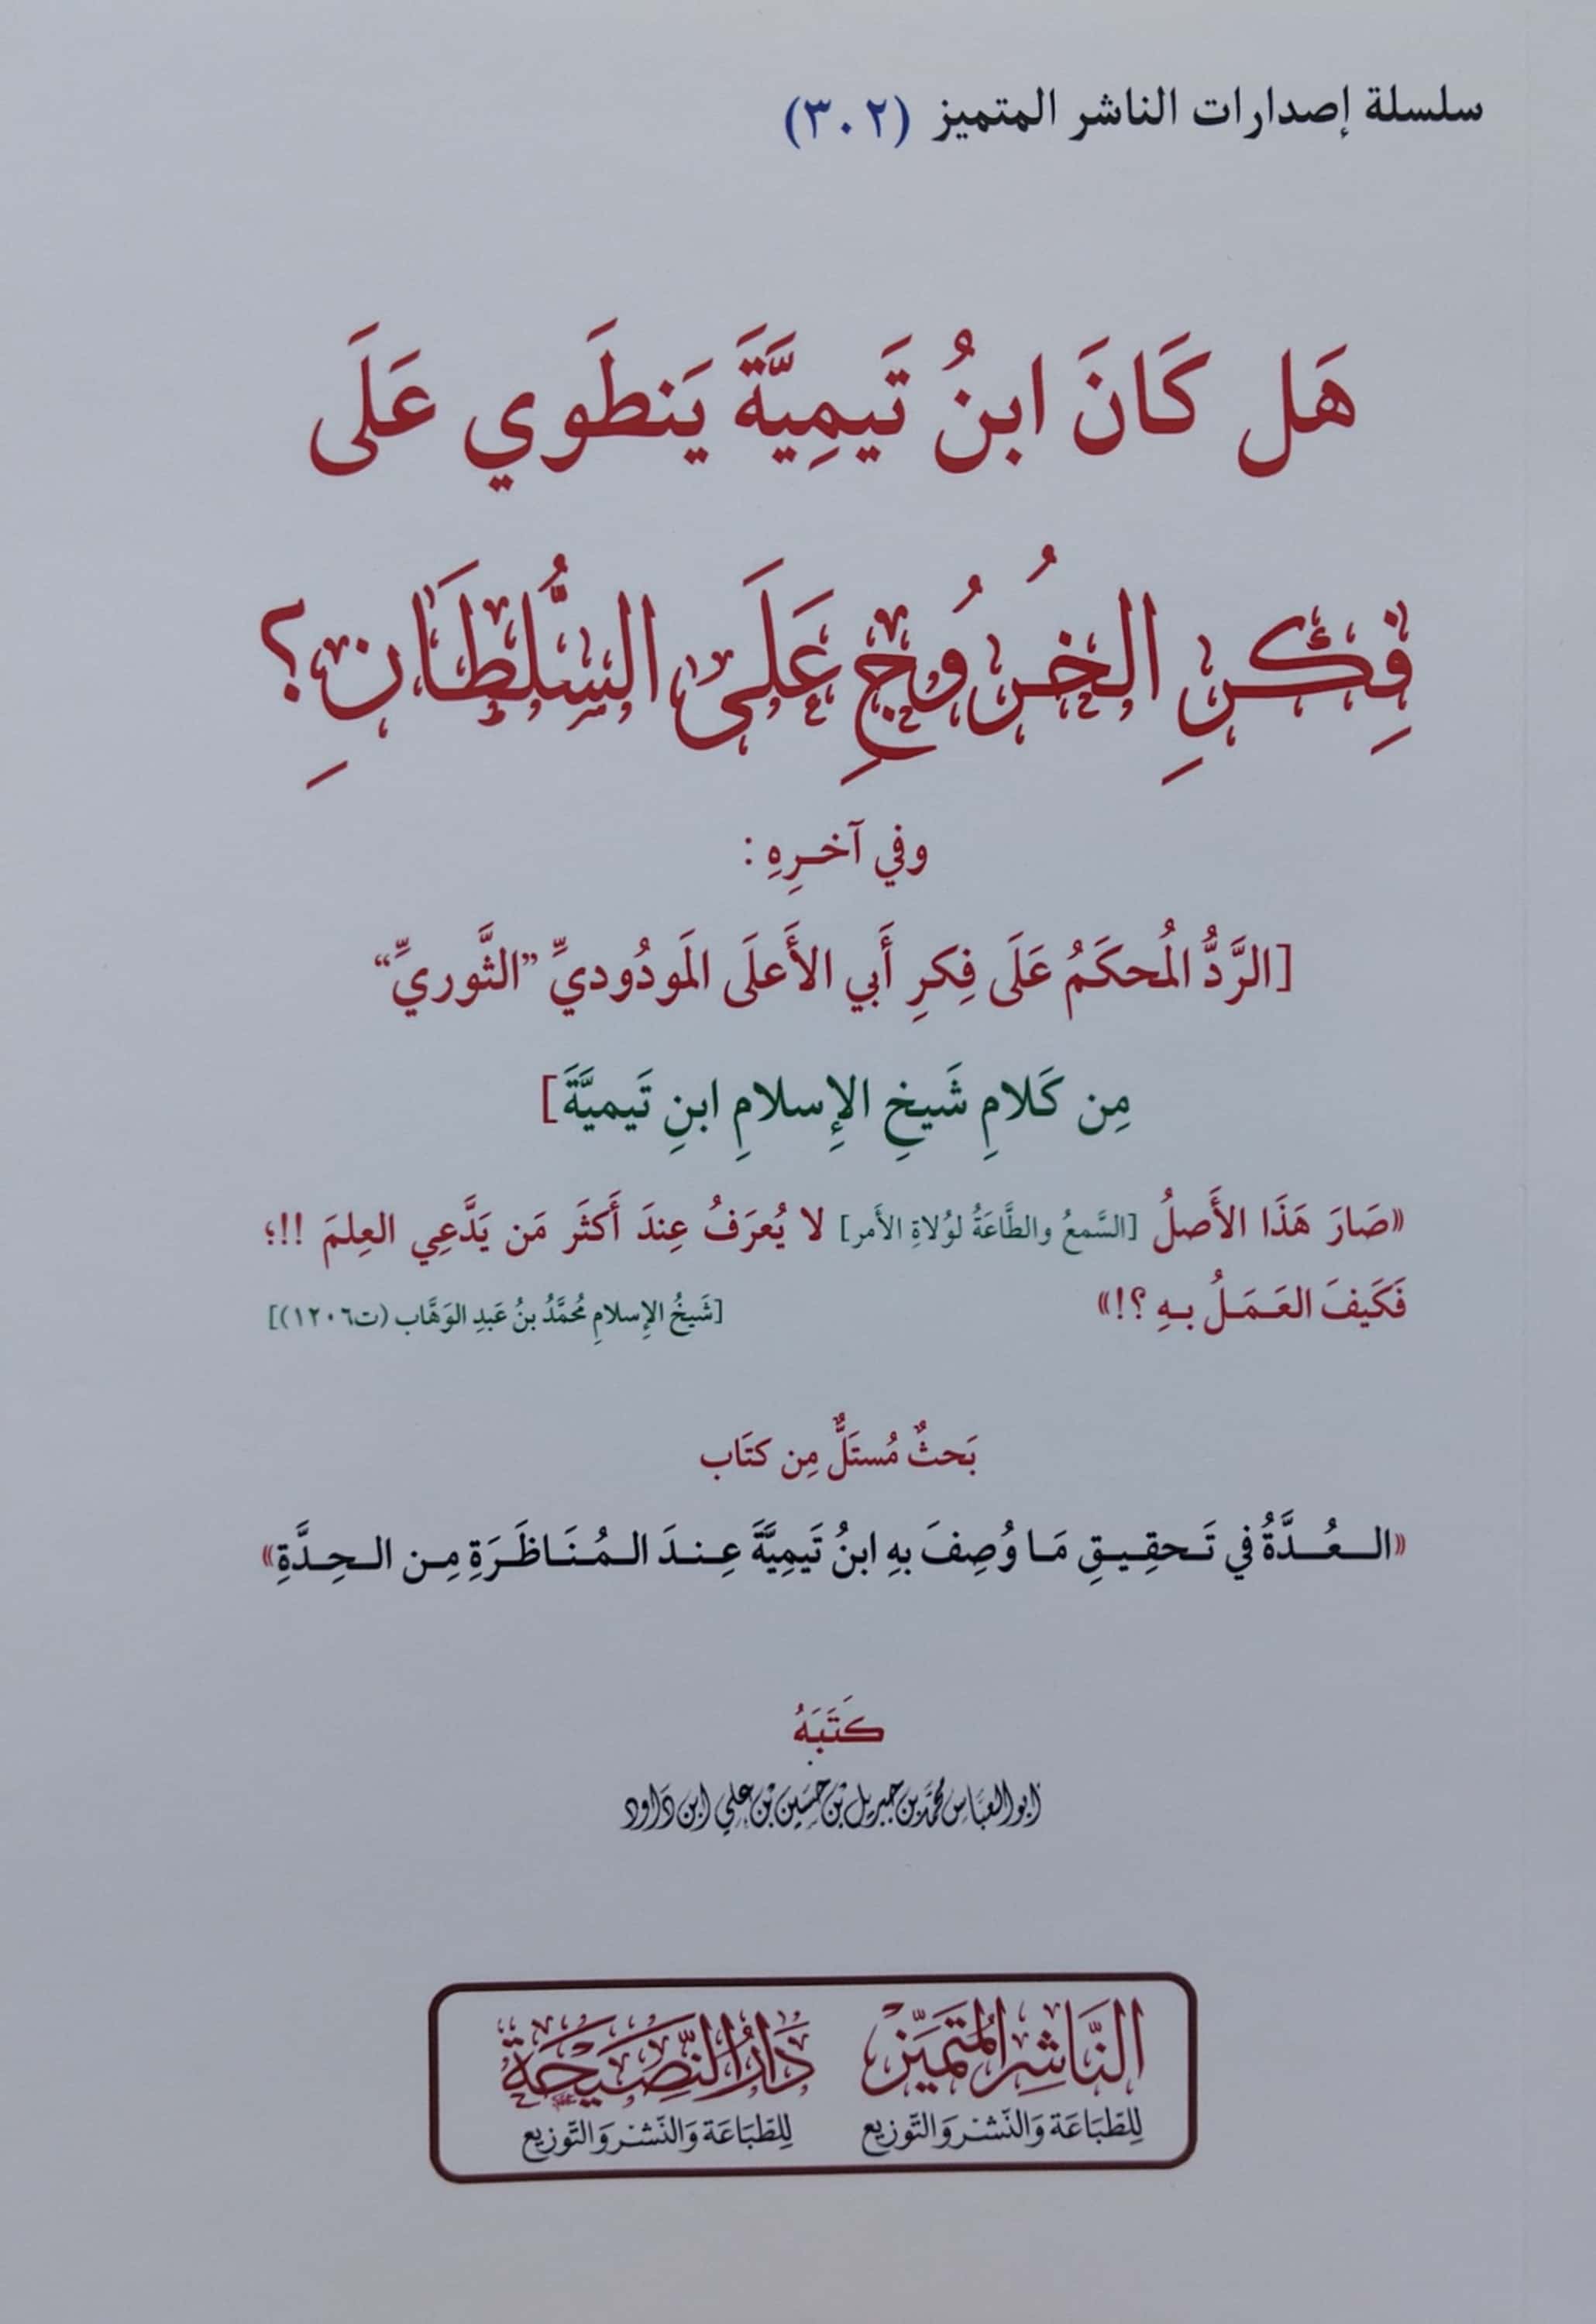 سلسلة إصدارات الناشر المتميز (٣٠٢)
هَل كَانَ ابنُ تَيمِيَّةَ يَنطَوِي عَلَى
فِكرِ الخُرُوجِ عَلَى السُّلطَانِ؟
وفي آخرِهِ :
[الرَّدُّ المُحكَمُ عَلَى فِكرِ أَبي الأَعلَى المَودُوديِّ ”الثَّوريِّ“
مِن كَلامِ شَيخِ الإِسلامِ ابنِ تَيميَّةَ]
«صَارَ هَذَا الأَصلُ [السَّمعُ والطَّاعَةُ لوُلاةِ الأَمر] لا يُعرَفُ عِندَ أَكثَر مَن يَدَّعِي العِلمَ !!؛
فَكَيفَ العَمَلُ بهِ ؟!» [شَيخُ الإِسلامِ مُحمَّدُ بنُ عَبدِ الوَهَّاب (ت١٢٠٦)]
بَحثٌ مُستَلٌّ مِن كتَاب
«العُدَّةُ في تَحقِيقِ مَا وُصِفَ بهِ ابنُ تَيمِيَّةَ عِندَ المُنَاظَرَةِ مِن الحِدَّةِ»
كَتَبَهُ
ابو العبَّاس محمَّد بن جبريل بن حسَين بن علي ابن دَاود
النَّاشِر المُتَمَيّز
دَارُ النَّصِيحَة
للطبَاعَة وَالنَّشر وَالتَّوزيع
للطبَاعَة وَالنَّشر وَالتَّوزيع